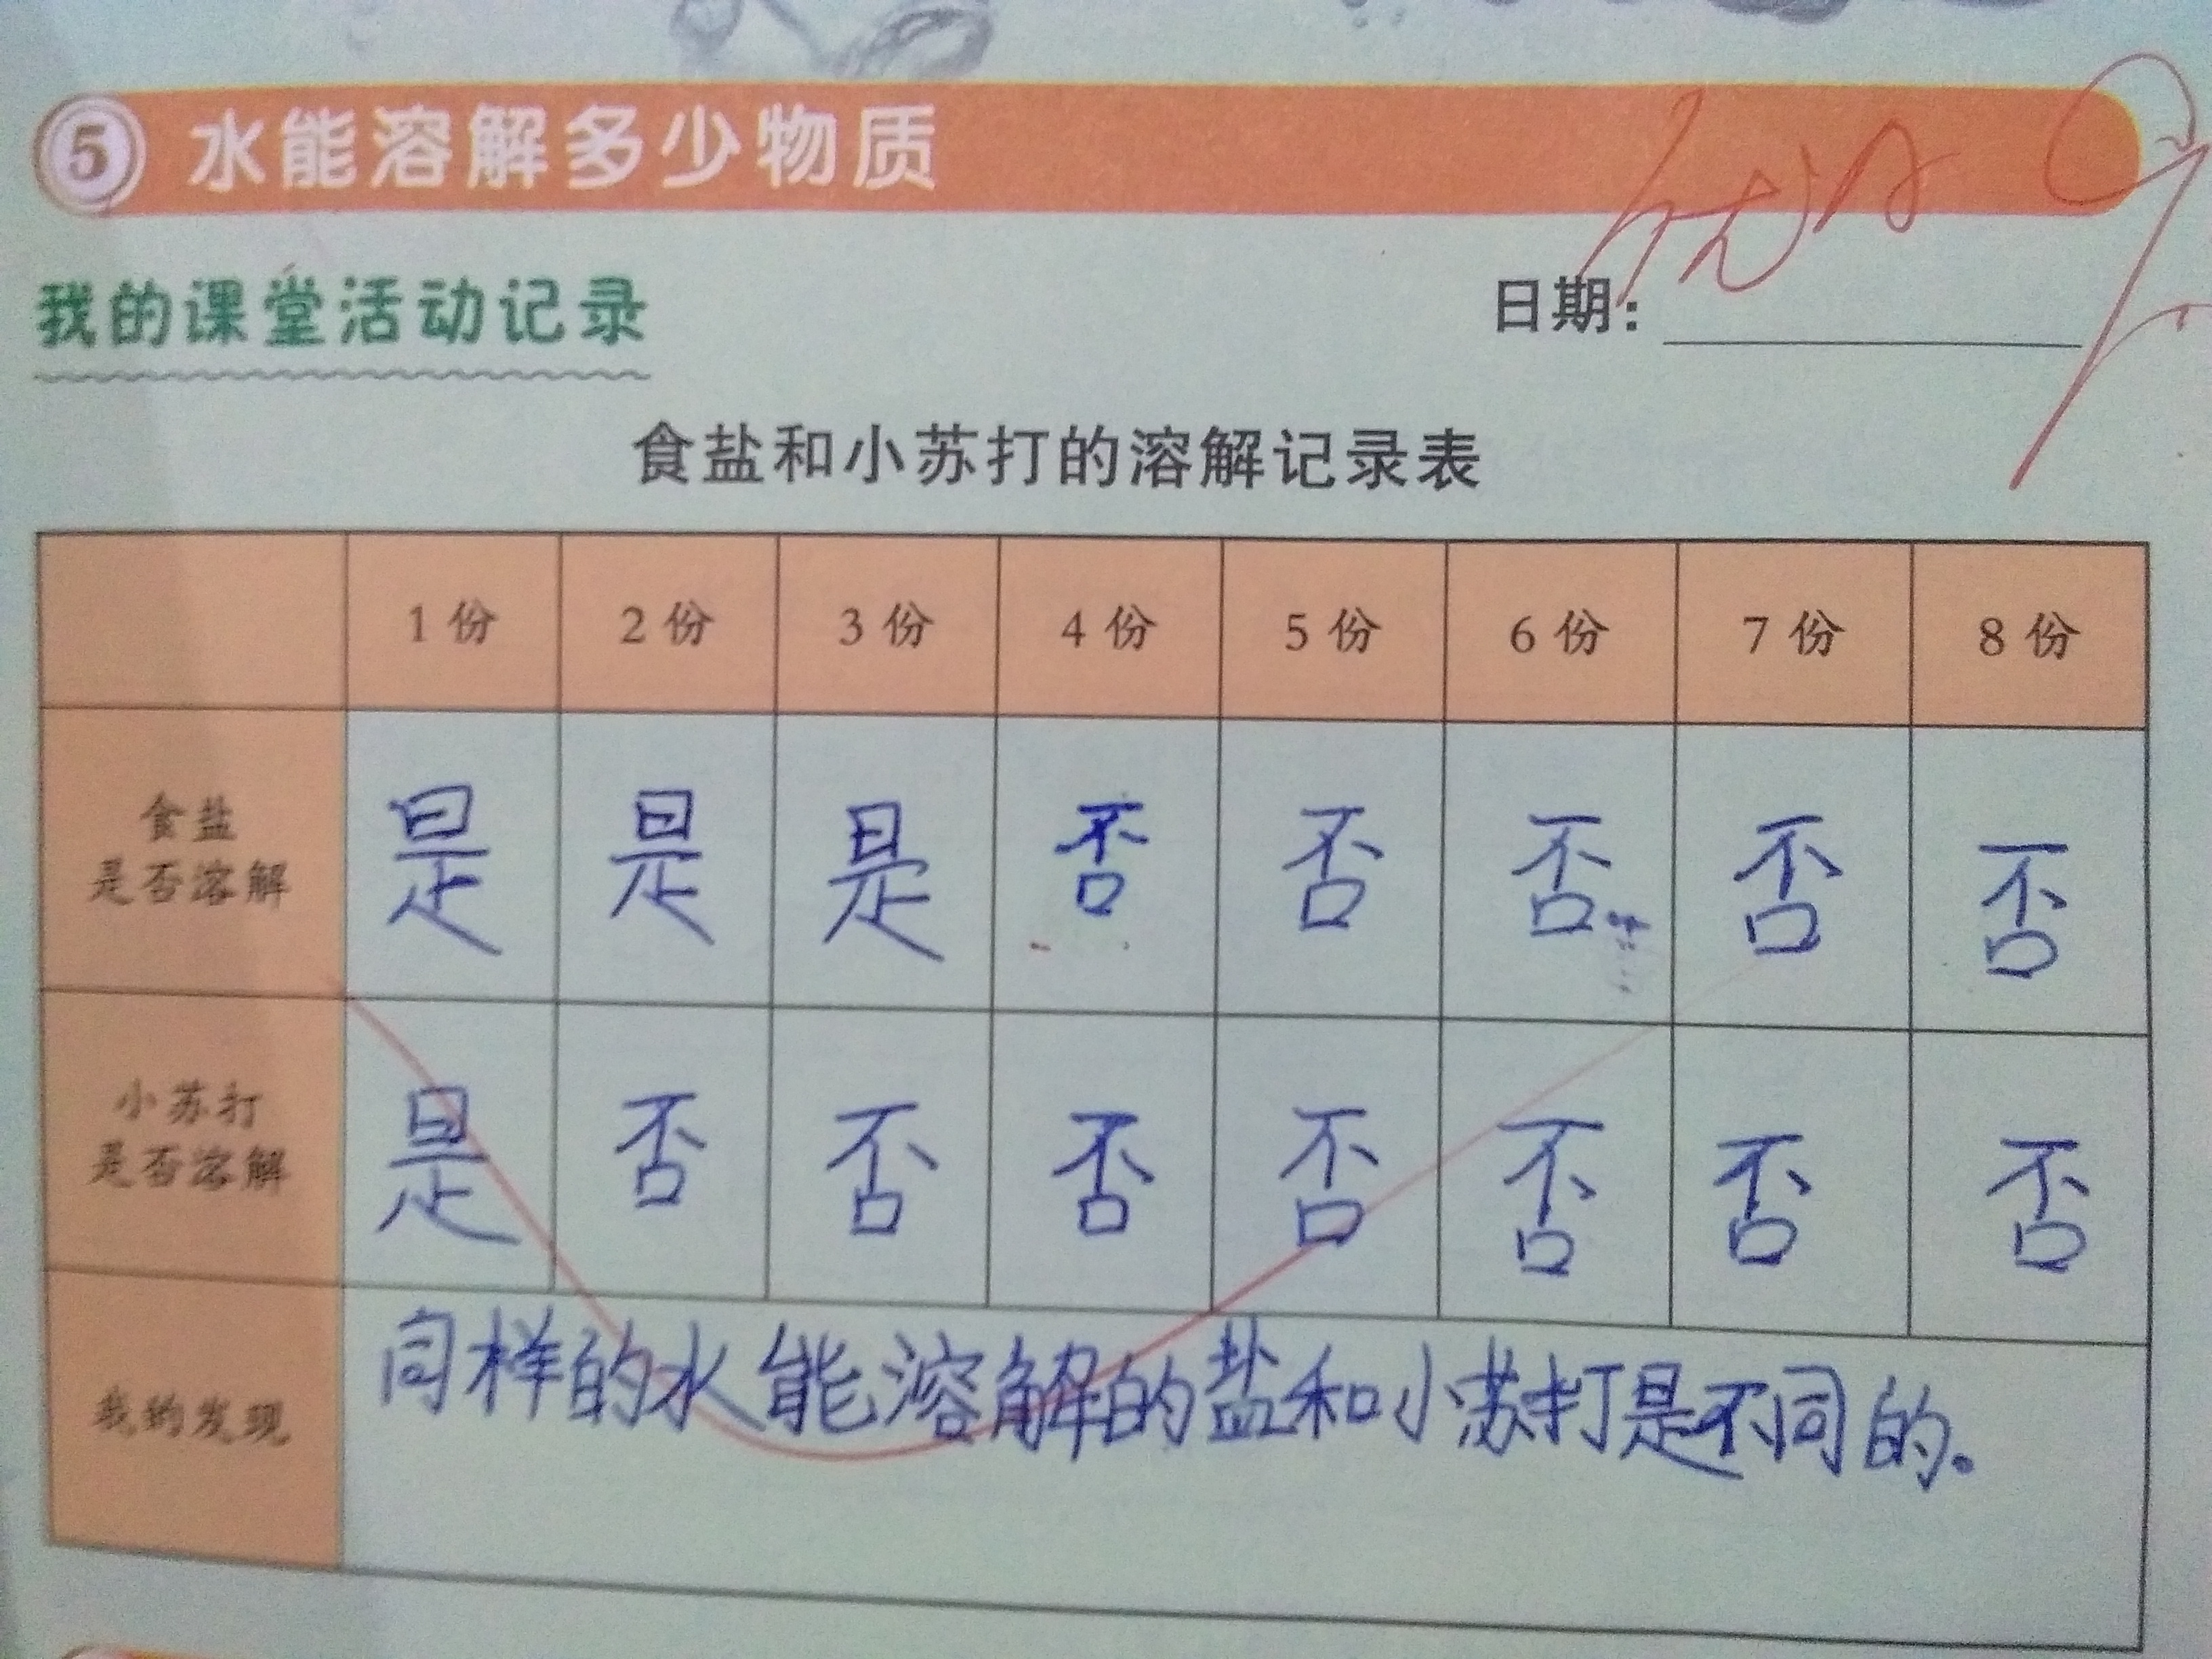 5 水能溶解多少物质
我的课堂活动记录
日期：
食盐和小苏打的溶解记录表
1份 2份 3份 4份 5份 6份 7份 8份
食盐
是否溶解 是 是 是 否 否 否 否 否
小苏打
是否溶解 是 否 否 否 否 否 否 否
我的发现 同样的水能溶解的盐和小苏打是不同的。